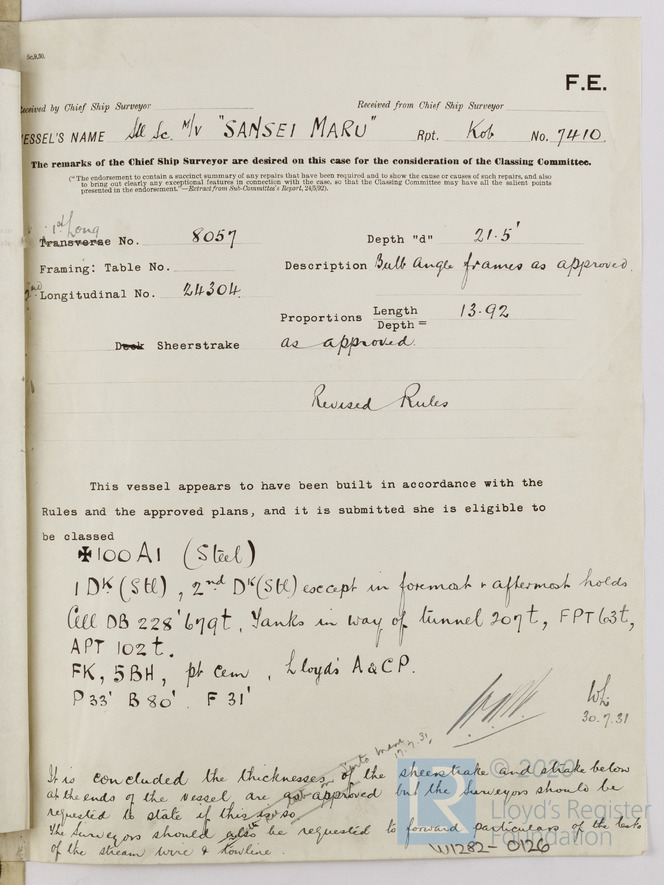 F.E.
Received by Chief Ship Surveyor Received from Chief Ship Surveyor
VESSEL'S NAME Stl Sc M/V "SANSEI MARU" Rpt. Kob No. 7410.
The remarks of the Chief Ship Surveyor are desired on this case for the consideration of the Classing Committee.
("The endorsement to contain a succinct summary of any repairs that have been required and to show the cause or causes of such repairs, and also
to bring out clearly any exceptional features in connection with the case, so that the Classing Committee may have all the salient points
presented in the endorsement."—Extract from Sub-Committee's Report, 24/5/92).
1st Long
Transverse No. 8057 Depth "d" 21.5'
Framing: Table No. Description Bulb Angle frames as approved.
2nd Longitudinal No. 24304
Proportions Length
Depth = 13.92
Deck Sheerstrake as approved.
Revised Rules
This vessel appears to have been built in accordance with the
Rules and the approved plans, and it is submitted she is eligible to
be classed
✠100A1 (Steel)
1 DK (Stl), 2nd DK (Stl) except in foremost & aftermost holds
Cell DB 228' 679t, Tanks in way of tunnel 207t, FPT 63t,
APT 102t.
FK, 5BH, pt cem, Lloyd's A & CP.
P 33' B 80' F 31'
30.7.31
It is concluded the thicknesses of the sheerstrake and strake below
at the ends of the vessel are as approved but the Surveyors should be
requested to state if this is so
The Surveyors should also be requested to forward particulars of the tests
of the stream wire & towline.
W1282-0126
© 2020
Lloyd's Register
Foundation